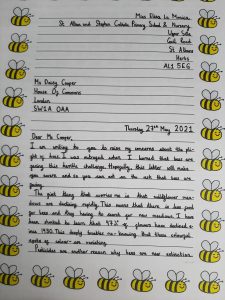 Miss Elena La Monica
St Alban and Stephen Catholic Primary School & Nursery
Upper Site
Cecil Road
St Albans
Herts
AL1 5EG
Ms Daisy Cooper
House Of Commons
London
SW1A 0AA
Thursday 27th May 2021
Dear Ms Cooper,
I am writing to you to raise my concerns about the pli-
ght of bees. I was outraged when I learned that bees are
facing this horrific challenge. Hopefully, this letter will make
you aware and so you can act on the ask that bees are
giving.
The first thing that worries me is that wildflower mea-
dows are declining rapidly. This means that there is less food
for bees and they having to search for new meadows. I have
been shocked to learn that 97% of flowers have declined s-
ince 1930. This deeply troubles me knowing that these
of colour are vanishing.
Pesticides are another reason why bees are near extinction.